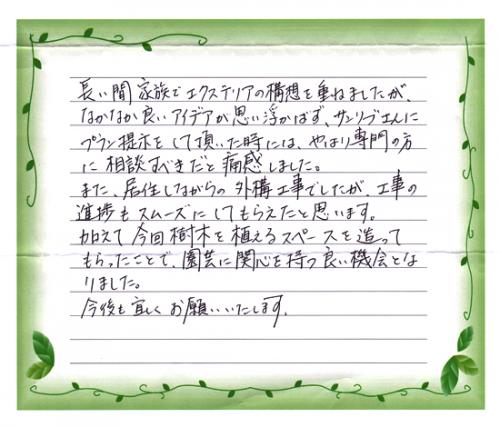 長い間家族でエクステリアの構想を重ねましたが、
なかなか良いアイデアが思い浮かばず、サンリブさんに
プラン提示をして頂いた時には、やはり専門の方
に相談すべきだと痛感しました。
また、居住しながらの外構工事でしたが、工事の
進捗もスムーズにしてもらえたと思います。
加えて今回樹木を植えるスペースを造って
もらったことで、園芸に関心を持つ良い機会とな
りました。
今後も宜しくお願いいたします。